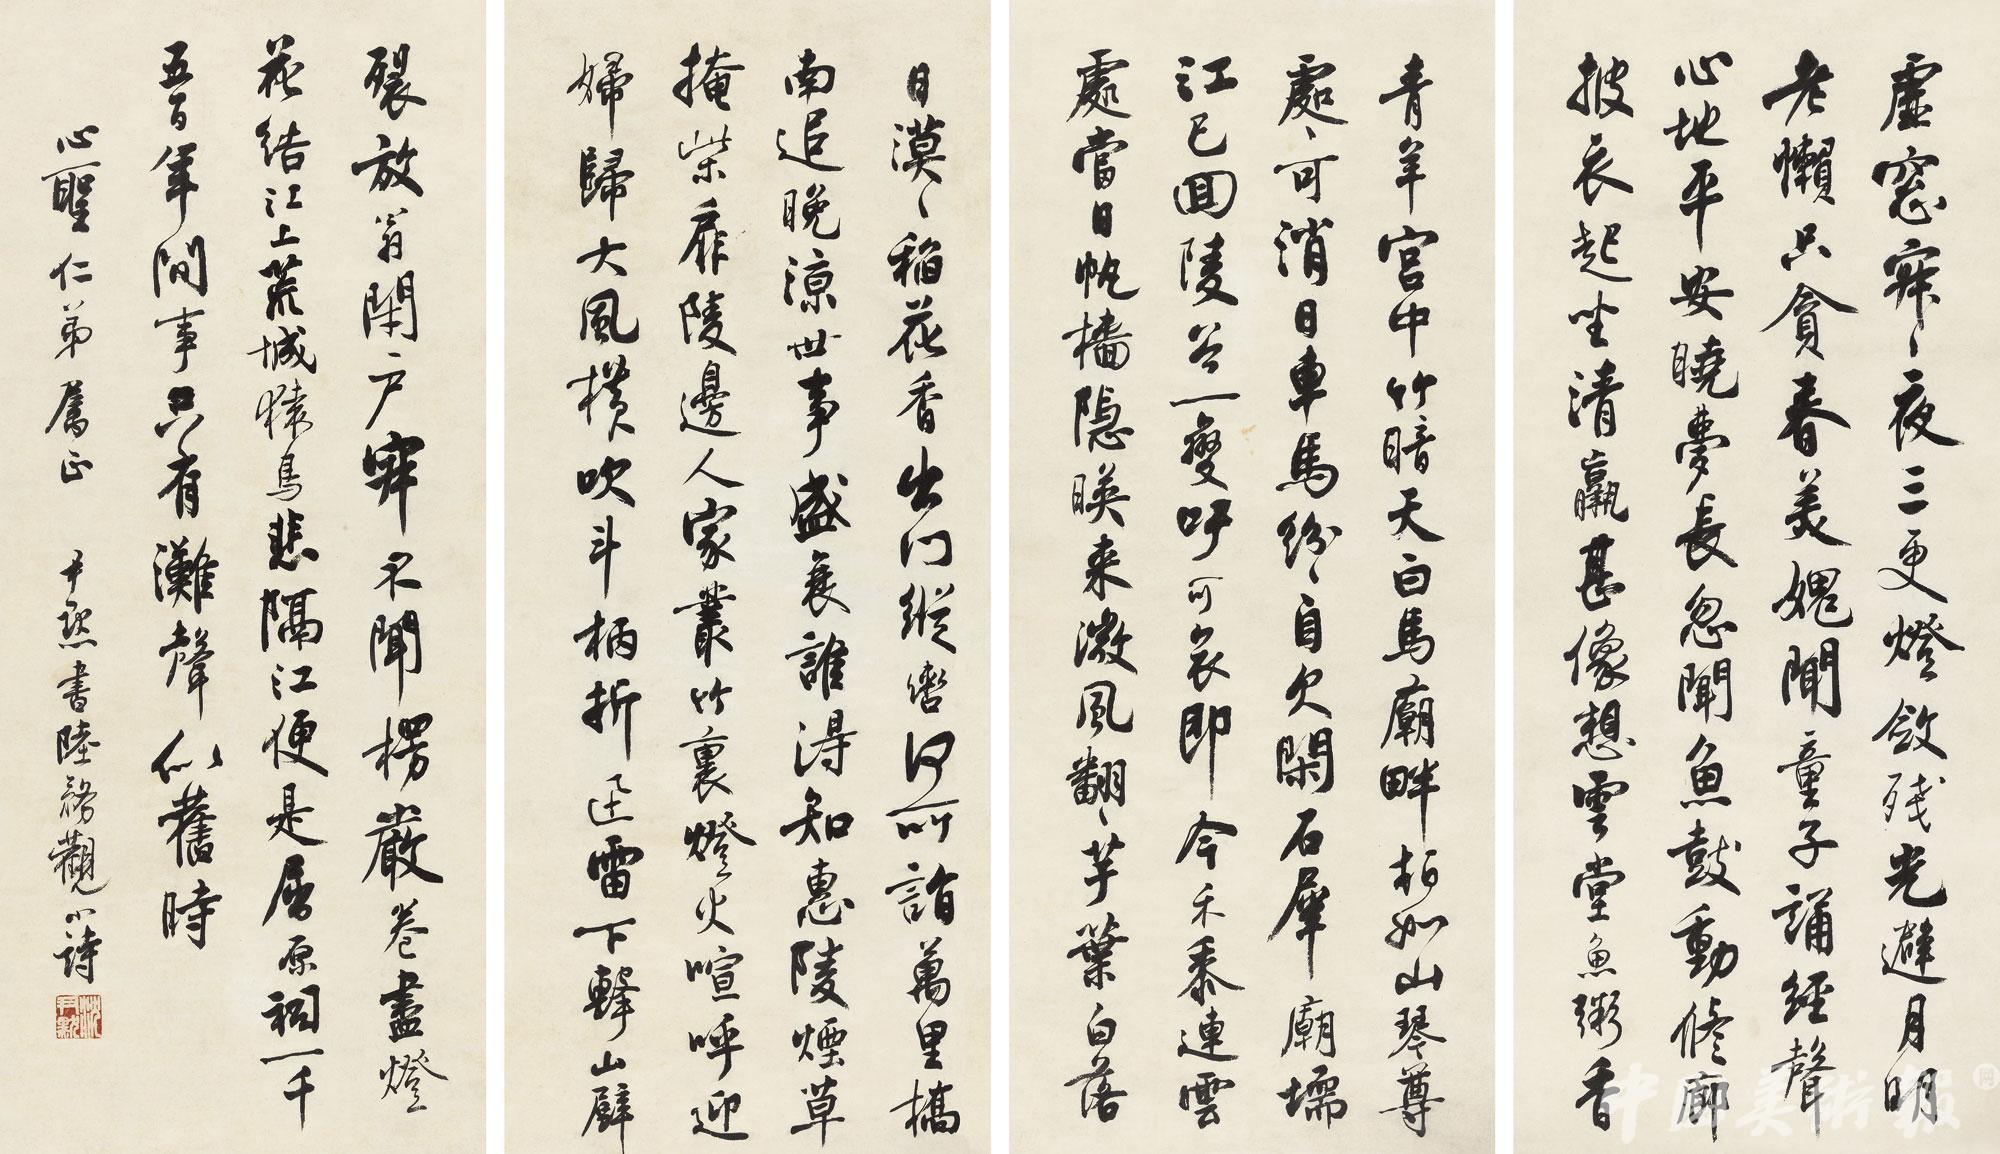 虛窓寂〻夜三更燈斂殘光避月明
老懶只貪春美媿聞童子誦經聲
心地平安曉夢長忽聞魚鼓動修廊
披衣起坐清羸甚像想雲堂魚粥香
青羊宮中竹暗天白馬廟畔柏如山琴尊
處〻可消日車馬紛〻自欠閑石犀廟壖
江已回陵谷一變吁可哀即今禾黍連雲
處當日帆檣隱映來微風翻〻芋葉白落
日漠〻稻花香出門縱轡何所詣萬里橋
南追晚涼世事盛衰誰得知惠陵煙草
掩柴扉陵邊人家叢竹裏燈火喧呼迎
婦歸大風橫吹斗柄折迅雷下擊山壁
裂放翁閑戶寂不聞楞嚴卷盡燈
花結江上荒城猿鳥悲隔江便是屈原祠一千
五百年間事只有灘聲似舊時
心聖仁弟屬正 尹默書陸務觀小詩
沈尹默
中国美術報 网